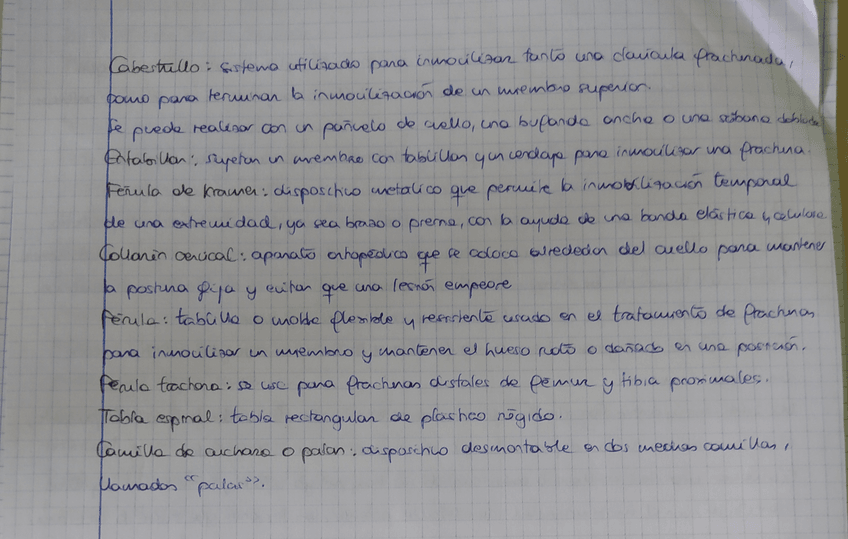 Cabestrillo: sistema utilizado para inmovilizar tanto una clavícula fracturada,
como para terminar la inmovilización de un miembro superior.
Se puede realizar con un pañuelo de cuello, una bufanda ancha o una sábana doblada
Entablillar: sujetar un miembro con tablillas y un vendaje para inmovilizar una fractura.
Férula de Kramer: dispositivo metálico que permite la inmovilización temporal
de una extremidad, ya sea brazo o pierna, con la ayuda de una banda elástica y celulosa.
Collarín cervical: aparato ortopédico que se coloca alrededor del cuello para mantener
la postura fija y evitar que una lesión empeore
Férula: tablilla o molde flexible y resistente usado en el tratamiento de fracturas
para inmovilizar un miembro y mantener el hueso roto o dañado en una posición.
Férula tractora: se usa para fracturas distales de fémur y tibia proximales.
Tabla espinal: tabla rectangular de plástico rígido.
Camilla de cuchara o palas: dispositivo desmontable en dos medias camillas,
llamadas "palas".